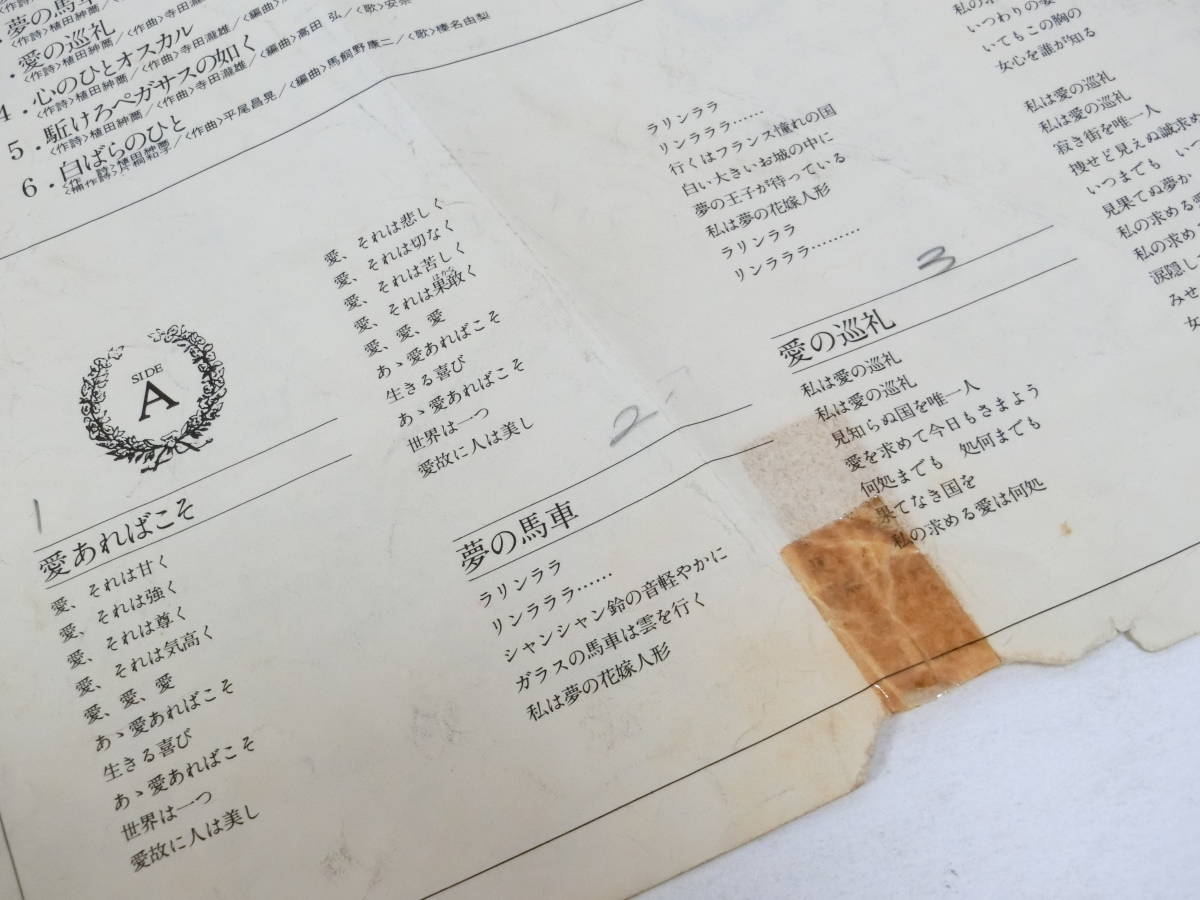 夢の馬車
〈作詩〉植田紳爾／〈作曲〉寺田瀧雄／〈編曲〉
愛の巡礼
〈作詩〉植田紳爾／〈作曲〉寺田瀧雄／〈編曲〉高田 弘／〈歌〉安奈
4．心のひとオスカル
〈作詩〉植田紳爾／〈作曲〉寺田瀧雄／〈編曲〉
5．駈けろペガサスの如く
〈作詩〉植田紳爾／〈作曲〉寺田瀧雄／〈編曲〉馬飼野康二／〈歌〉榛名由梨
6．白ばらのひと
〈作 詩〉植田紳爾／〈作曲〉平尾昌晃／〈編曲〉
〈補作詩〉片桐和子
SIDE
A
1
愛あればこそ
愛、それは甘く
愛、それは強く
愛、それは尊く
愛、それは気高く
愛、愛、愛
あゝ愛あればこそ
生きる喜び
あゝ愛あればこそ
世界は一つ
愛故に人は美し
愛、それは悲しく
愛、それは切なく
愛、それは苦しく
愛、それは果敢く
愛、愛、愛
あゝ愛あればこそ
生きる喜び
あゝ愛あればこそ
世界は一つ
愛故に人は美し
2
夢の馬車
ラリンララ
リンラララ……
シャンシャン鈴の音軽やかに
ガラスの馬車は雲を行く
私は夢の花嫁人形
ラリンララ
リンラララ……
行くはフランス憧れの国
白い大きいお城の中に
夢の王子が待っている
私は夢の花嫁人形
ラリンララ
リンラララ………
3
愛の巡礼
私は愛の巡礼
私は愛の巡礼
見知らぬ国を唯一人
愛を求めて今日もさまよう
何処までも 処何までも
果てなき国を
私の求める愛は何処
いつわりの姿
いてもこの胸の
女心を誰が知る
私は愛の巡礼
私は愛の巡礼
寂き街を唯一人
捜せど見えぬ誠求め
いつまでも いつ
見果てぬ夢か
私の求める愛
私の求め
涙隠し
みせ
女